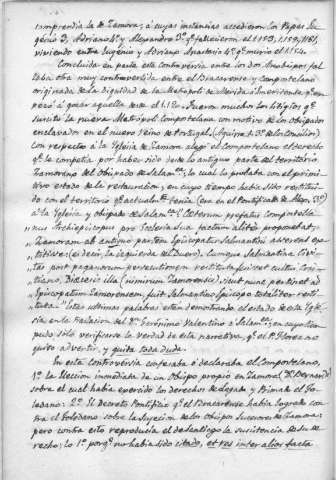 comprendia la de Zamora; á cuyas instancias accedieron los Papas Eu-
genio 3º, Adriano 4º y Alexandro 3º, qº fallecieron el 1153, 1159, 1181,
viviendo entre Eugenio y Adriano Anastasio 4º qº murió el 1154.
Concluida en parte esta controversia entre los dos Arzobispos fal-
taba otra muy controvertida entre el Bracarense y compostelano
originada de la dignidad de la Metropoli de Merida á Emeritense, qº em-
pezó á gozar aquella desde el 1120. Fueron muchos los litigios qº
suscitó la nueva Metropoli Compostelana con motivo de los obispados
enclavados en el nuevo Reino de Portugal (Aguirre tº 3º de los Concilios)
Con respecto á la Yglesia de Zamora alegó el Compostelano el derecho
qº le competia por haber sido desde lo antiguo parte del territorio
Zamorano del Obispado de Salamca, lo cual lo probaba con el primi-
tivo estado de la restauracion, en cuyo tiempo habia sido restitui-
do con el territorio qº actualmte tenia (era en el Pontificado de Alexo 3º)
á la Yglesia y obispado de Salamca "Cæterum prefatus Compostella-
nus Archiepiscopus pro Ecclesia sua factum aliter proponebat,
"Zamoram ab antiquo partem Episcopatus Salmantini asserens
(es decir, la izquierda del Duero). Cumque Salmantina Civi-
"tas post paganorum persecutionem restituta fuisset cultui Cris-
"tiano, Diœcesis illa (nimirum Zamorensis), sicut nunc pertinet ad
"Episcopatum Zamorensem, fuit Salmantino Episcopo totaliter resti-
"tuta." Estas ultimas palabras están demostrando el estado de esta Ygle-
sia en la traslacion del Dn Geronimo Valentino á Salamca; en cuyo tiem-
po solo verificarse la verdad de esta narrativa, qº el Pe Florez no
quiso advertir, y quita toda duda.
En esta controversia enterado ó declaraba el Compostelano,
1º la eleccion inmediata de un Obispo propio en Zamora (Dn Bernardo)
sobre el cual habia exercido los derechos de delegado y Primado el To-
ledano: 2º el Decreto Pontificio qº el Bracarense habia logrado con-
tra el Toledano sobre la sujecion de los Obispos Sucesores de Zamora;
pero contra esto reproducia el de Santiago la subsistencia de su de-
recho; lo 1º porqº no habia sido citado, et res inter alios facta